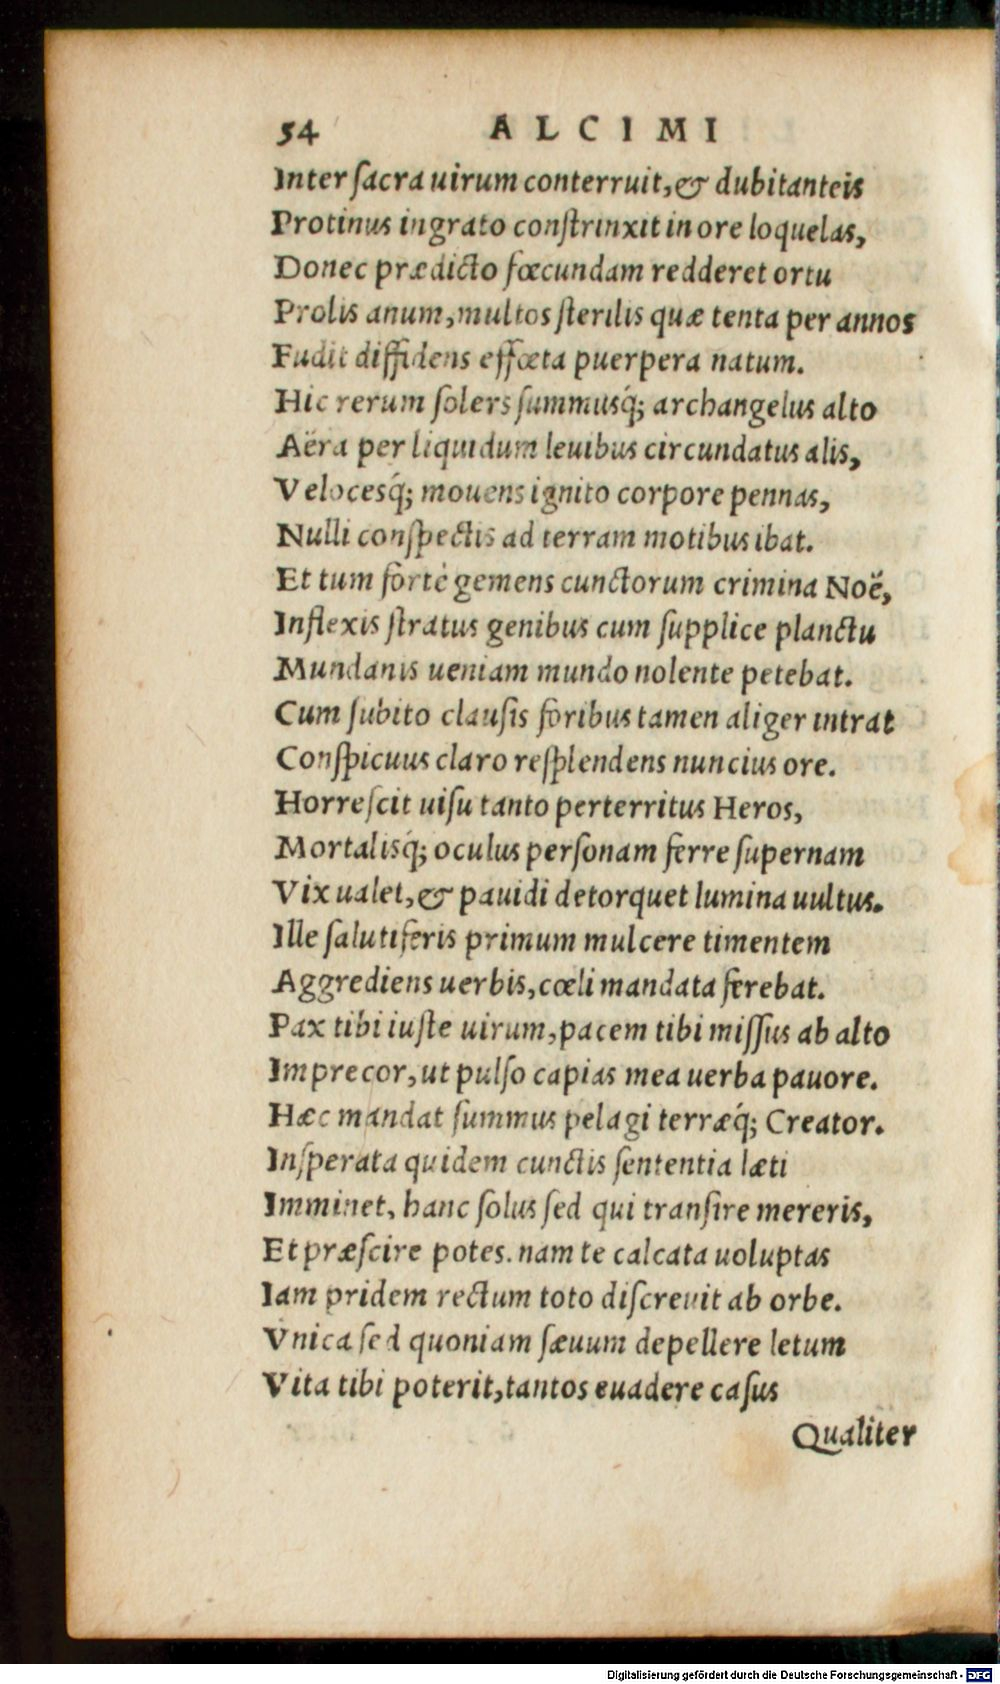 54 ALCIMI
Inter ſacra uirum conterruit, & dubitanteis
Protinus ingrato conſtrinxit in ore loquelas,
Donec prædicto fœcundam redderet ortu
Prolis anum, multos ſterilis quæ tenta per annos
Fudit diffidens effœta puerpera natum.
Hic rerum ſolers ſummusq́; archangelus alto
Aëra per liquidum leuibus circundatus alis,
Velocesq́; mouens ignito corpore pennas,
Nulli conſpectis ad terram motibus ibat.
Et tum fortè gemens cunctorum crimina Noë,
Inflexis ſtratus genibus cum ſupplice planctu
Mundanis ueniam mundo nolente petebat.
Cum ſubito clauſis foribus tamen aliger intrat
Conſpicuus claro reſplendens nuncius ore.
Horreſcit uiſu tanto perterritus Heros,
Mortalisq́; oculus perſonam ferre ſupernam
Vix ualet, & pauidi detorquet lumina uultus.
Ille ſalutiferis primum mulcere timentem
Aggrediens uerbis, cœli mandata ferebat.
Pax tibi iuſte uirum, pacem tibi miſſus ab alto
Imprecor, ut pulſo capias mea uerba pauore.
Hæc mandat ſummus pelagi terræq́; Creator.
Inſperata quidem cunctis ſententia læti
Imminet, hanc ſolus ſed qui tranſire mereris,
Et præſcire potes. nam te calcata uoluptas
Iam pridem rectum toto diſcreuit ab orbe.
Vnica ſed quoniam ſæuum depellere letum
Vita tibi poterit, tantos euadere caſus
Qualiter
Digitalisierung gefördert durch die Deutsche Forschungsgemeinschaft - DFG